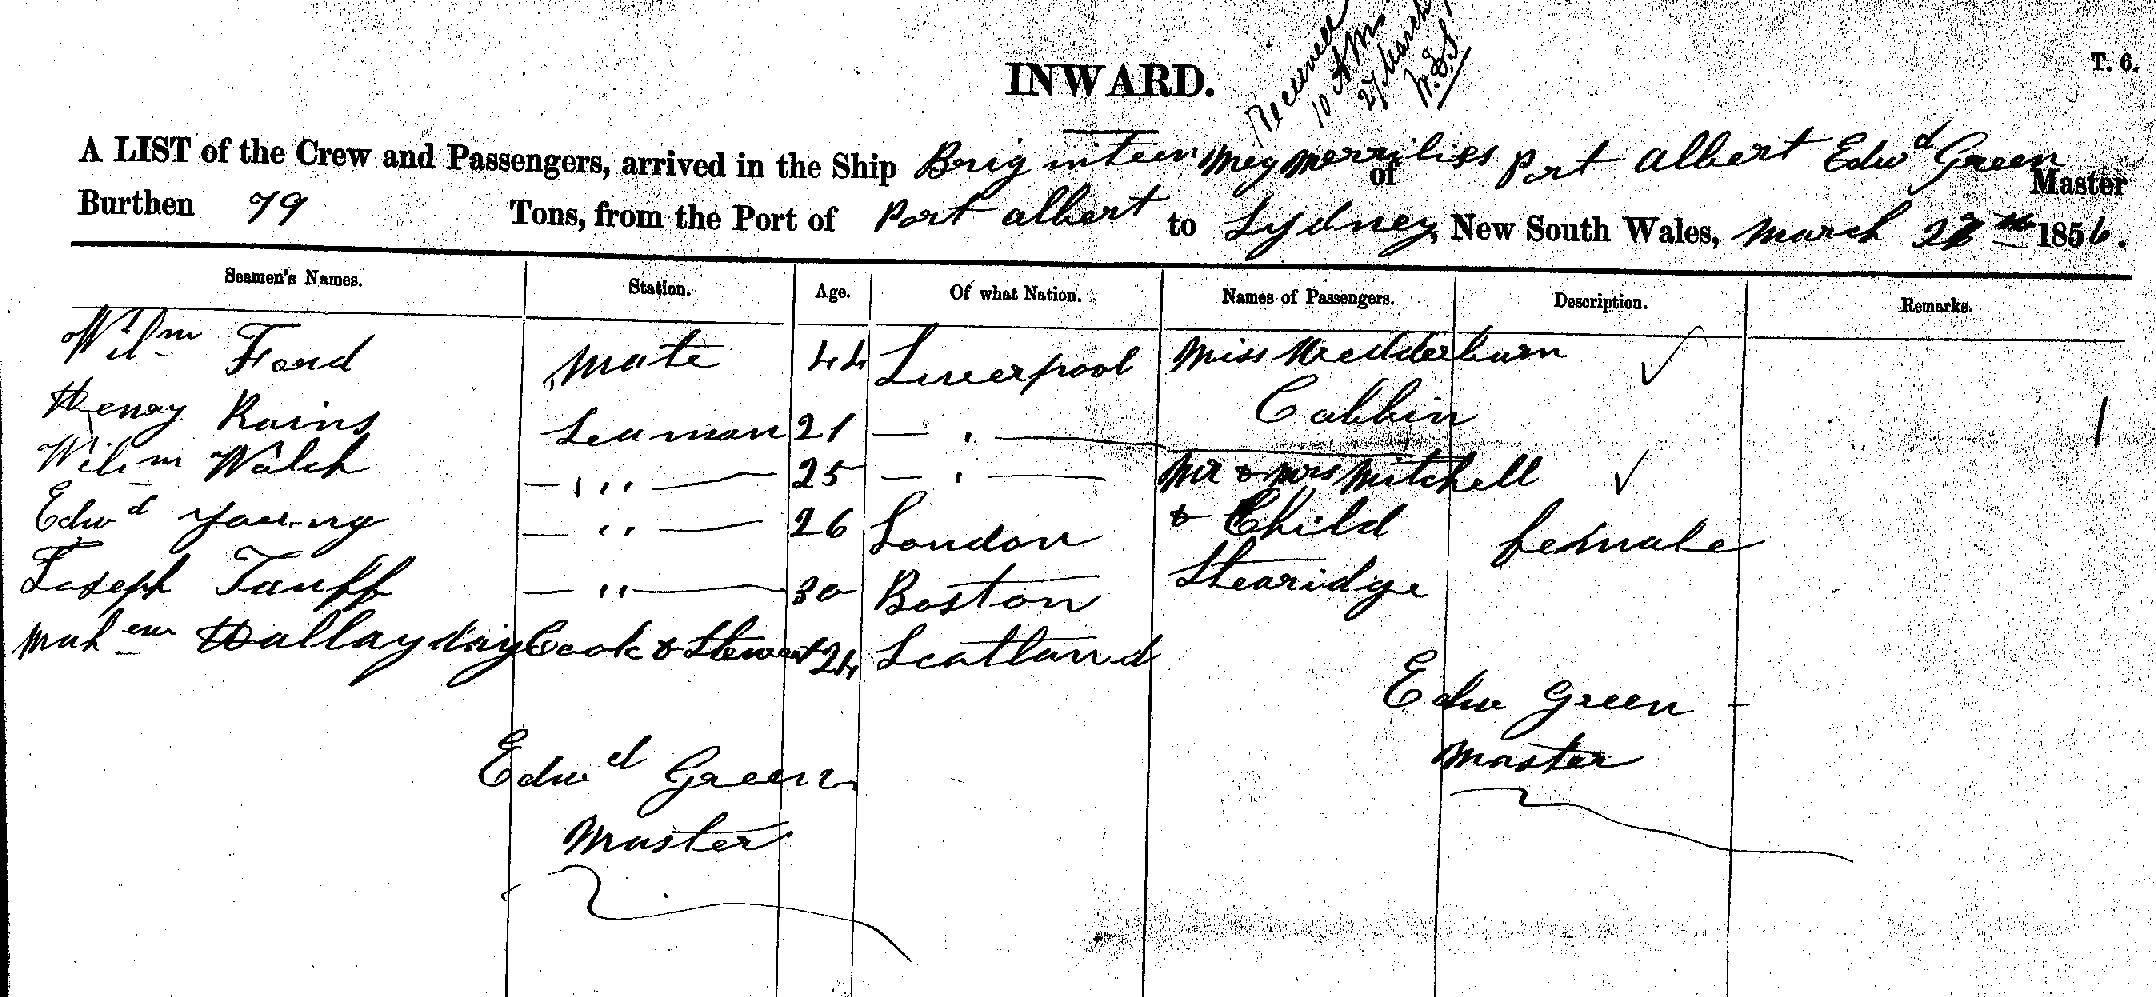 Received
10 AM
27 March
INWARD.
T. 6.
A LIST of the Crew and Passengers, arrived in the Ship Brig inteen Meg Merrilies of Port Albert Edwd Green Master
Burthen 79 Tons, from the Port of Port Albert to Sydney, New South Wales, March 27th 1856.
Seamen's Names. Station. Age. Of what Nation. Names of Passengers. Description. Remarks.
Wilm Ford Mate 44 Liverpool Miss Wedderburn ✓
Henry Rains Seaman 21 — " — Cabbin 1
Wilm Walch — " — 25 — " — Mr & Mrs Mitchell ✓
Edwd Young — " — 26 London & Child female
Joseph Tauff — " — 30 Boston Stearidge
Hallayday Cook & Steward 24 Scotland
Edw Green
Master
Edwd Green
Master